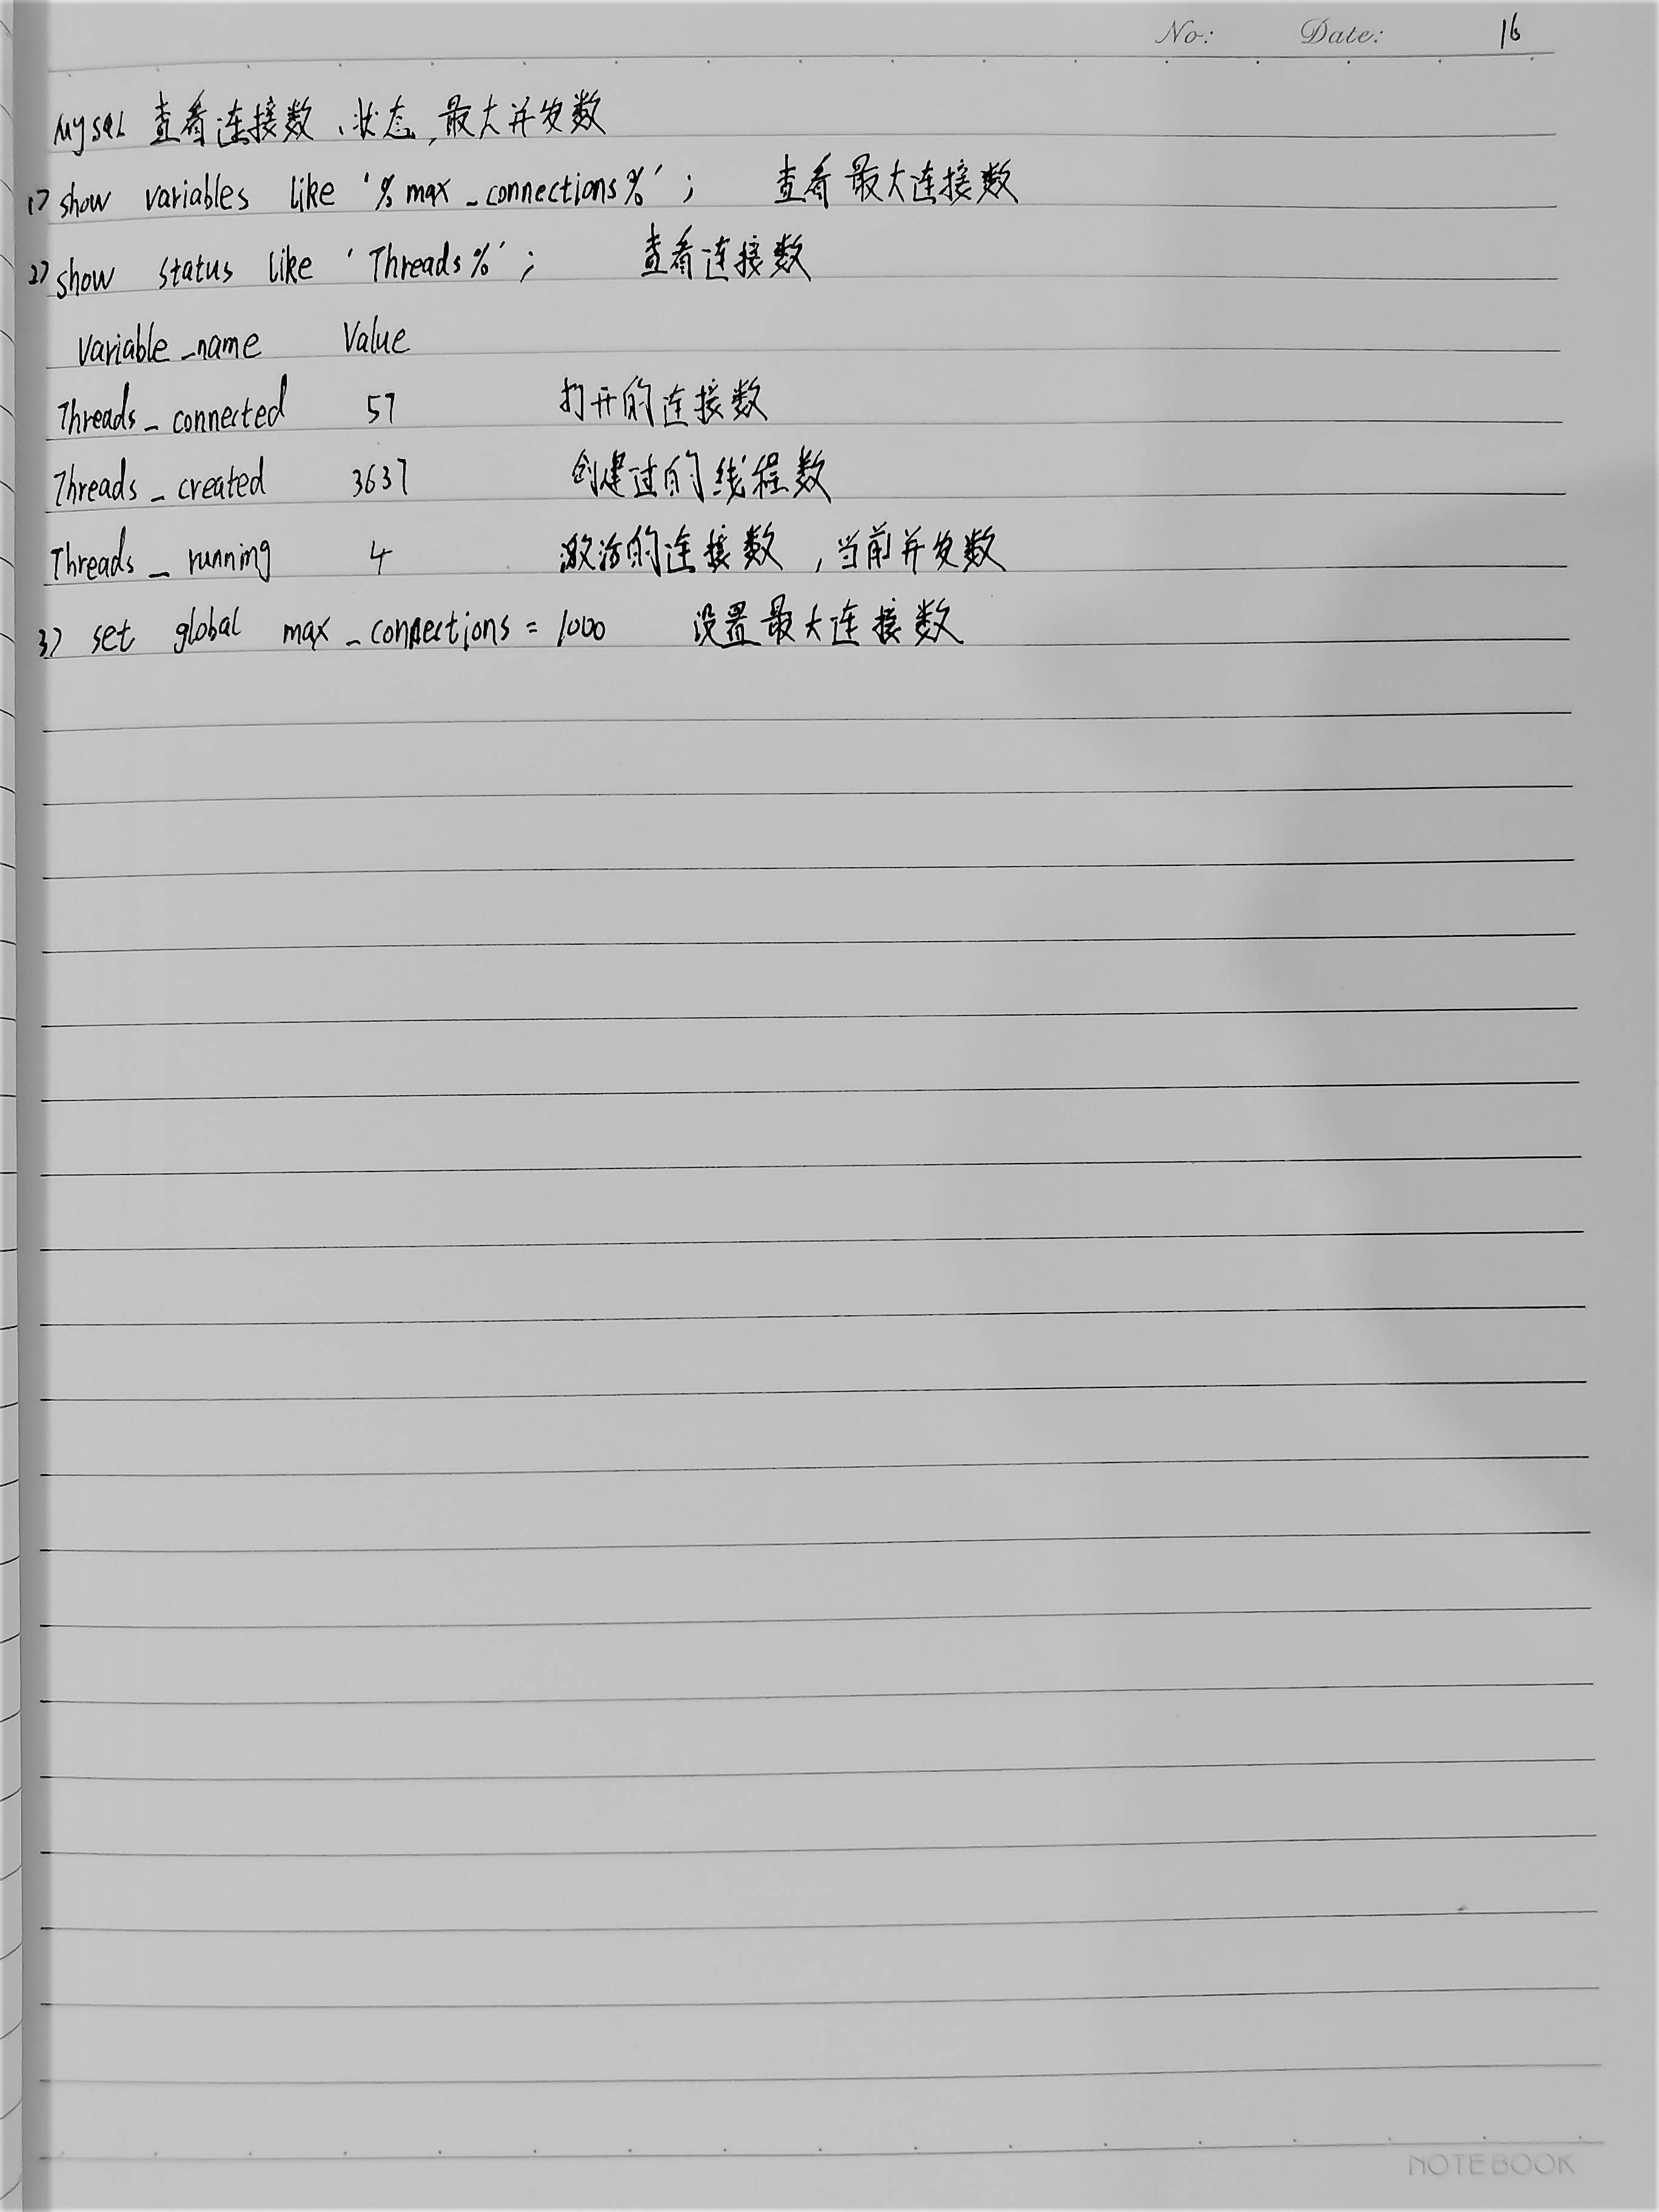 No: Date: 16
Mysql 查看连接数、状态,最大并发数
1) show variables like '%max_connections%'; 查看最大连接数
2) show status like 'Threads%'; 查看连接数
Variable_name Value
Threads_connected 57 打开的连接数
Threads_created 3637 创建过的线程数
Threads_running 4 激活的连接数,当前并发数
3) set global max_connections = 1000 设置最大连接数
NOTEBOOK